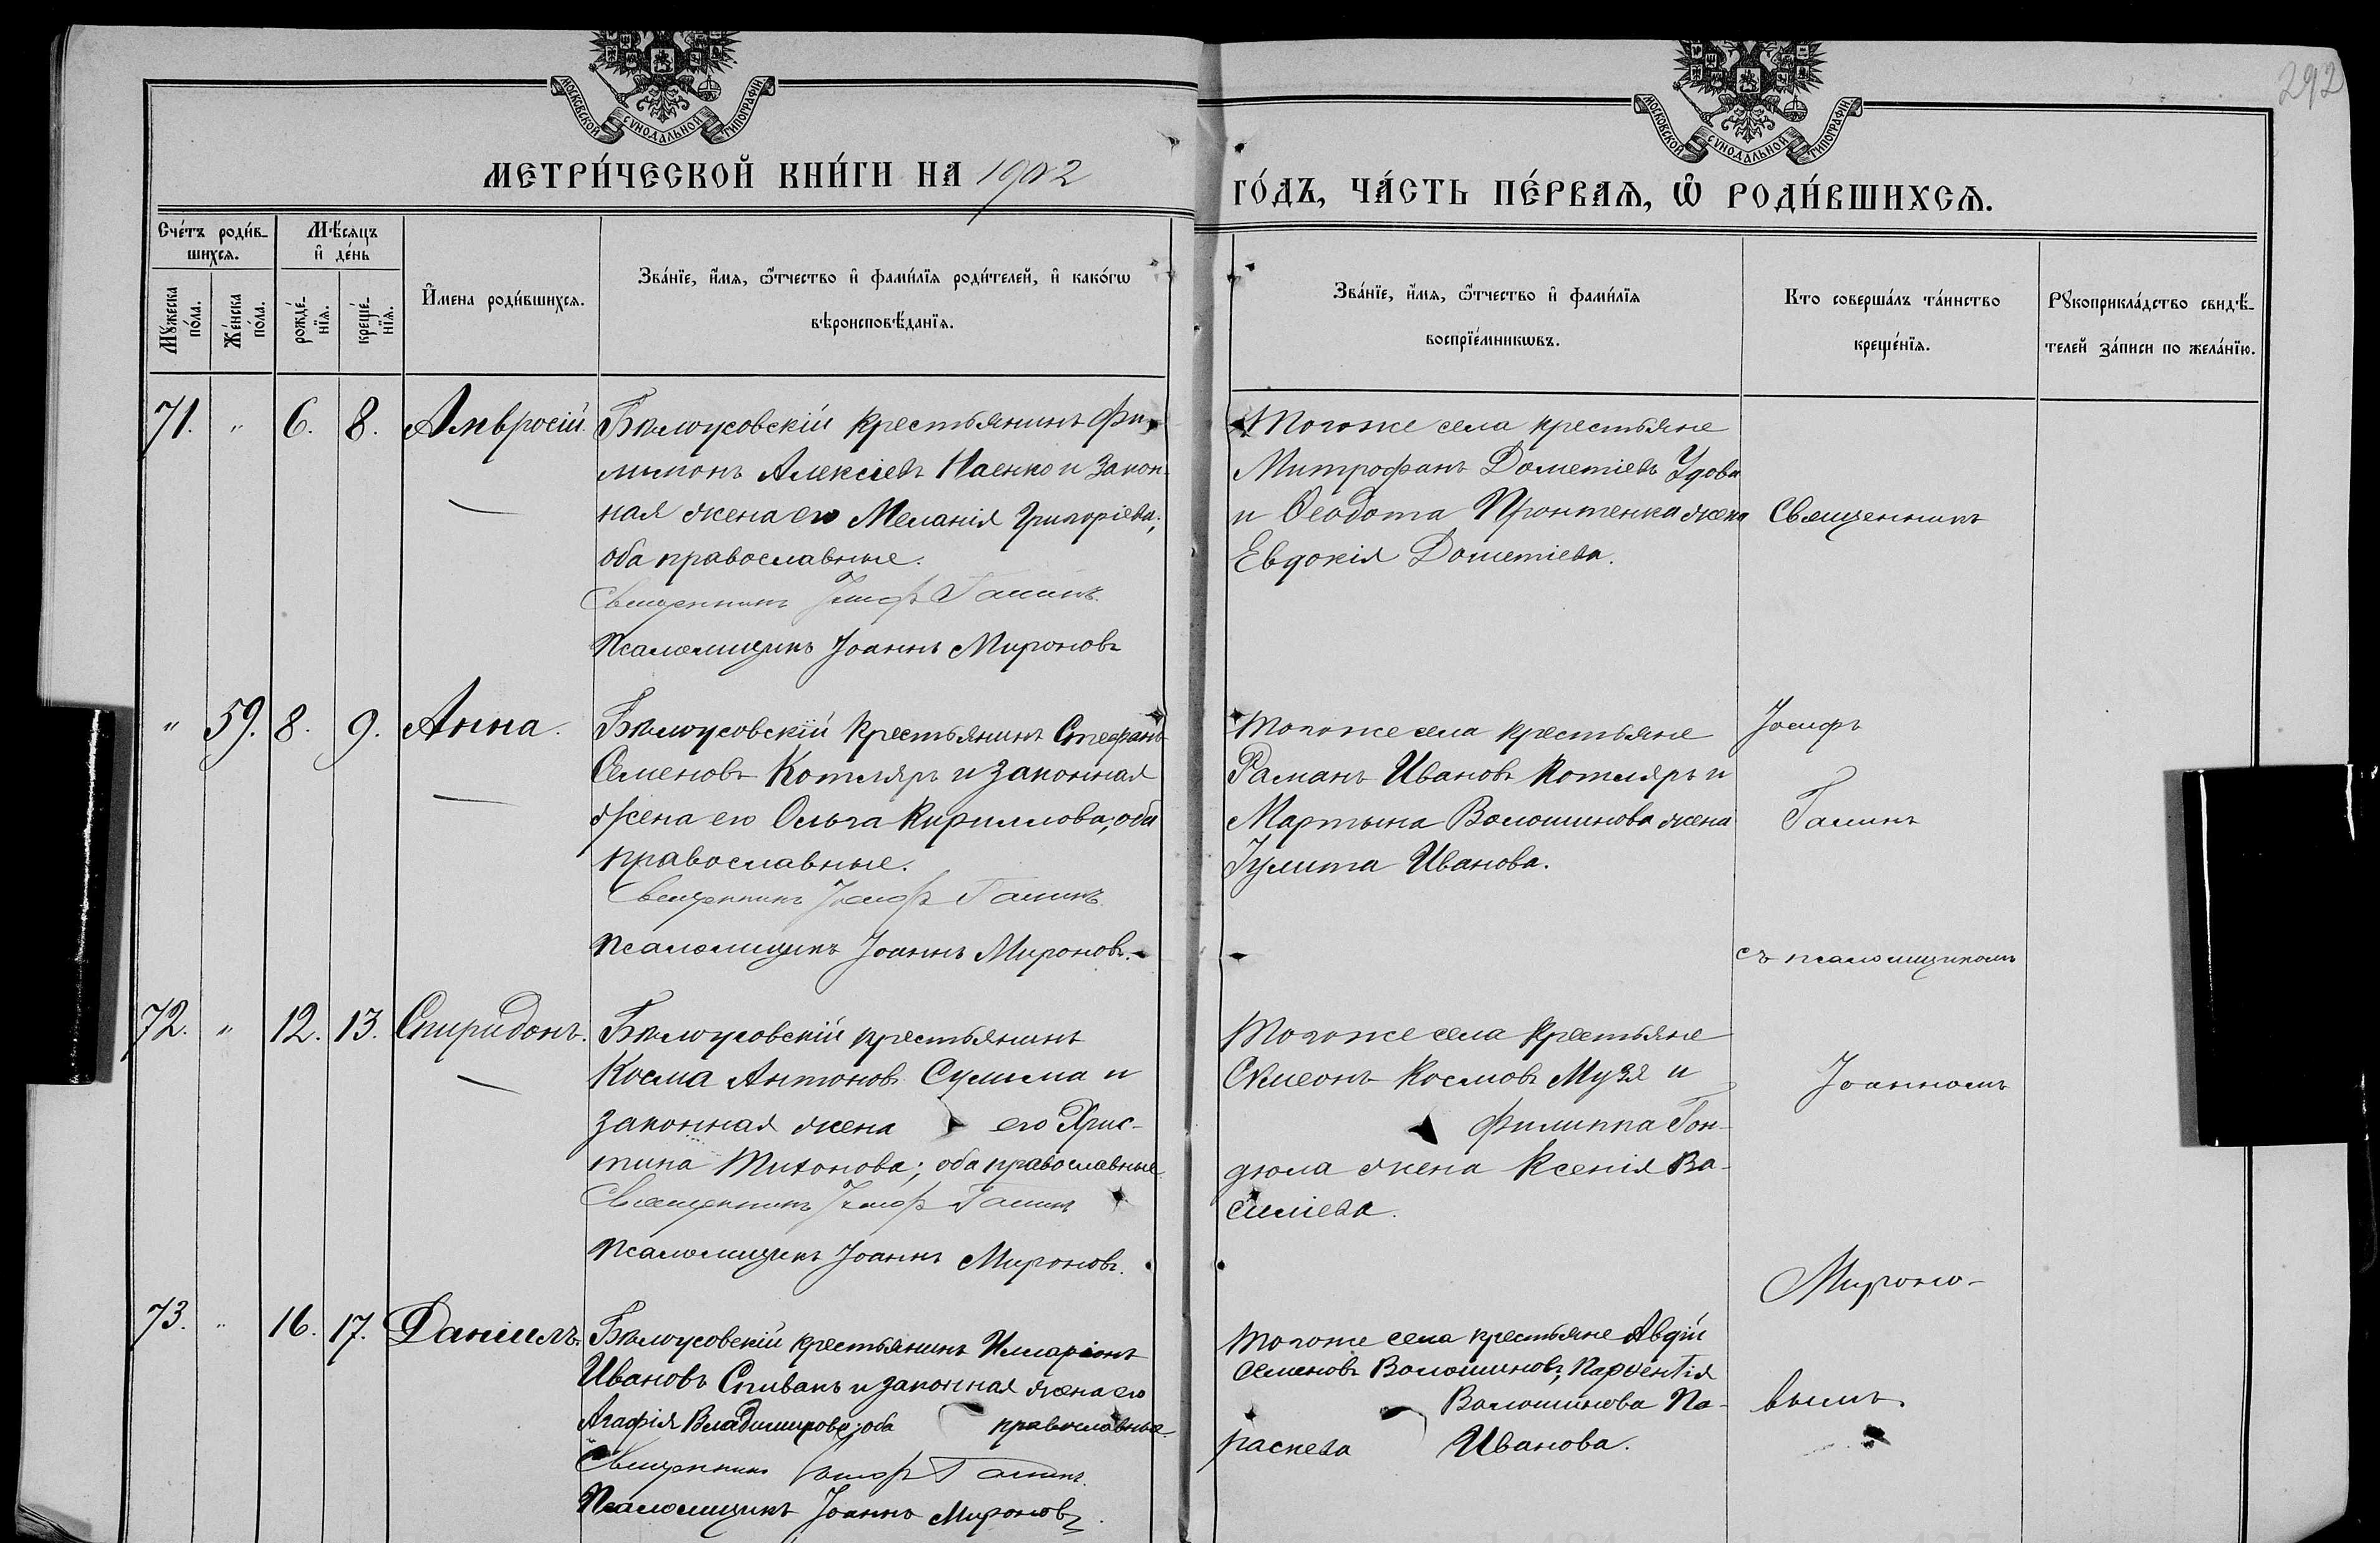 292
МОСКОВСКОЙ СѴНОДАЛЬНОЙ ТИПОГРАФІИ
МОСКОВСКОЙ СѴНОДАЛЬНОЙ ТИПОГРАФІИ
МЕТРИ́ЧЕСКОЙ КНИ́ГИ НА 1902
ГО́ДЪ, ЧА́СТЬ ПЕ́РВАѦ, Ѽ РОДИ́ВШИХСѦ.
Сче́тъ роди́в-
шихсѧ.
Мꙋ́жеска
по́ла.
Же́нска
по́ла.
Мѣ́сѧцъ
и҆ де́нь
рожде́-
нїѧ.
креще́-
нїѧ.
И҆мена роди́вшихсѧ.
Зва́нїе, и҆́мѧ, ѻ҆́тчество и҆ фами́лїѧ роди́телей, и҆ како́гѡ
вѣроисповѣ́данїѧ.
Зва́нїе, и҆́мѧ, ѻ҆́тчество и҆ фами́лїѧ
воспрїе́мникѡвъ.
Кто соверша́лъ та́инство
креще́нїѧ.
Рꙋкоприкла́дство свидѣ́-
телей за́писи по жела́нїю.
71. " 6. 8. Амвросій.
Бѣлоусовскій крестьянинъ Фи-
лимонъ Алексіевъ Наенко и закон-
ная жена его Меланія Григоріева;
оба православные.
Священникъ Іосифъ Галинъ
Псаломщикъ Іоаннъ Мироновъ
Тогоже села крестьяне
Митрофанъ Дометіевъ Удова
и Ѳеодота Пронтенка жена
Евдокія Дометіева.
Священникъ
" 59. 8. 9. Анна.
Бѣлоусовскій крестьянинъ Стефанъ
Семеновъ Котляръ и законная
жена его Ольга Кириллова; оба
православные.
Священникъ Іосифъ Галинъ
Псаломщикъ Іоаннъ Мироновъ.
Тогоже села крестьяне
Романъ Ивановъ Котляръ и
Мартына Волошинова жена
Іулита Иванова.
Іосифъ
Галинъ
съ псаломщикомъ
72. " 12. 13. Спиридонъ.
Бѣлоусовскій крестьянинъ
Косма Антоновъ Сулима и
законная жена его Хрис-
тина Тихонова; оба православные
Священникъ Іосифъ Галинъ
Псаломщикъ Іоаннъ Мироновъ.
Тогоже села крестьяне
Симеонъ Космовъ Музя и
Филиппа Гон-
дюла жена Ксенія Ва-
силіева.
Іоанномъ
Мироно-
73. " 16. 17. Даніилъ.
Бѣлоусовскій крестьянинъ Илларіонъ
Ивановъ Спивакъ и законная жена его
Агафія Владимирова; оба православные.
Священникъ Іосифъ Галинъ
Псаломщикъ Іоаннъ Мироновъ.
Тогоже села крестьяне Авдій
Семеновъ Волошиновъ, Парѳентія
Волошинова Па-
раскева Иванова.
вымъ.